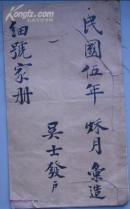 民國伍年 秌月 彙造
吴士發户
細號家册